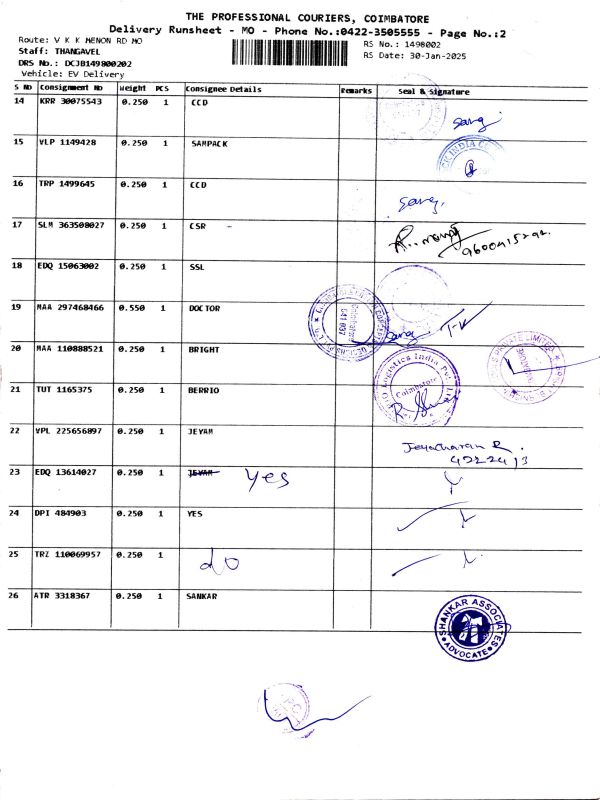 THE PROFESSIONAL COURIERS, COIMBATORE
Delivery Runsheet - MO - Phone No.:0422-3505555 - Page No.:2
Route: V K K MENON RD MO
RS No.: 1498002
Staff: THANGAVEL
RS Date: 30-Jan-2025
DRS No.: DCJB149800202
Vehicle: EV Delivery
S No Consignment No Weight PCS Consignee Details Remarks Seal & Signature
14 KRR 30075543 0.250 1 CCD
15 VLP 1149428 0.250 1 SAMPACK
16 TRP 1499645 0.250 1 CCD
17 SLM 363508027 0.250 1 CSR -
9600415292.
18 EDQ 15063002 0.250 1 SSL
19 MAA 297468466 0.550 1 DOCTOR
641 037
T-K
20 MAA 110888521 0.250 1 BRIGHT
21 TUT 1165375 0.250 1 BERRIO
Logistics India
Coimbatore
22 VPL 225656897 0.250 1 JEYAM
Jeyacharan R.
4222413
23 EDQ 13614027 0.250 1 JEYAM Yes
24 DPI 484903 0.250 1 YES
25 TRZ 110069957 0.250 1 do
26 ATR 3318367 0.250 1 SANKAR
SHANKAR ASSOCIATES
ADVOCATE